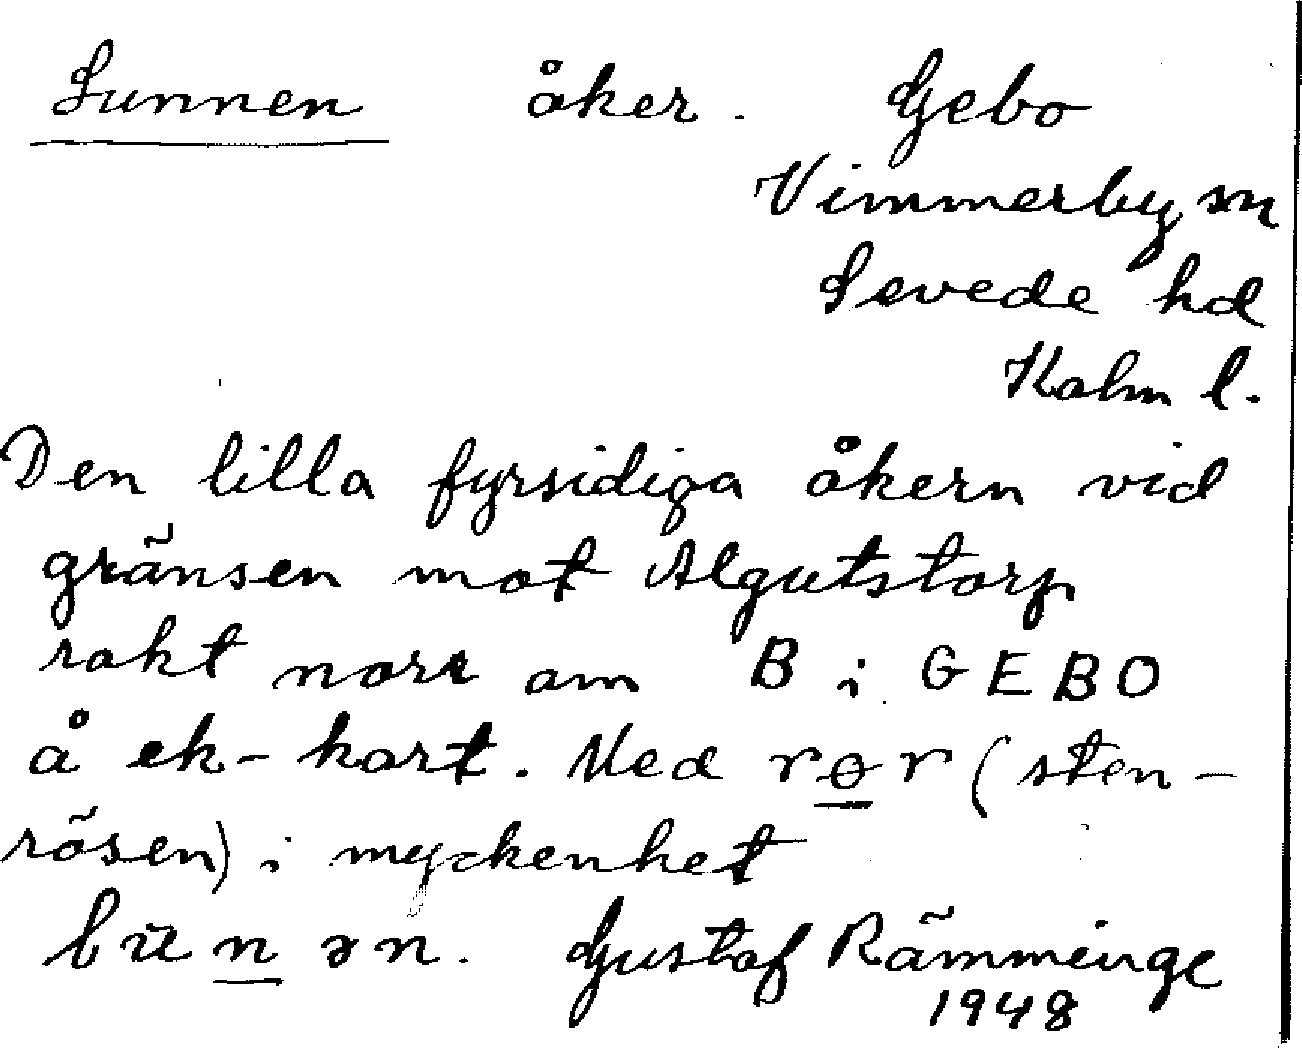 Lunnen åker. Gebo
Vimmerby sn
Sevede hd
Kalm l.
Den lilla fyrsidiga åkern vid
gränsen mot Algutstorp
rakt norr om B i GEBO
å ek-kart. Med rør (sten-
rösen) i myckenhet
lünən. Gustaf Rämminge
1948